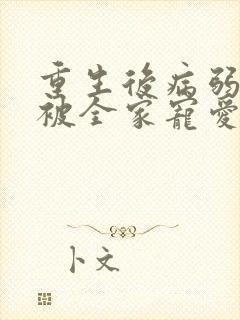 重生後病弱
被全家寵愛
卜文